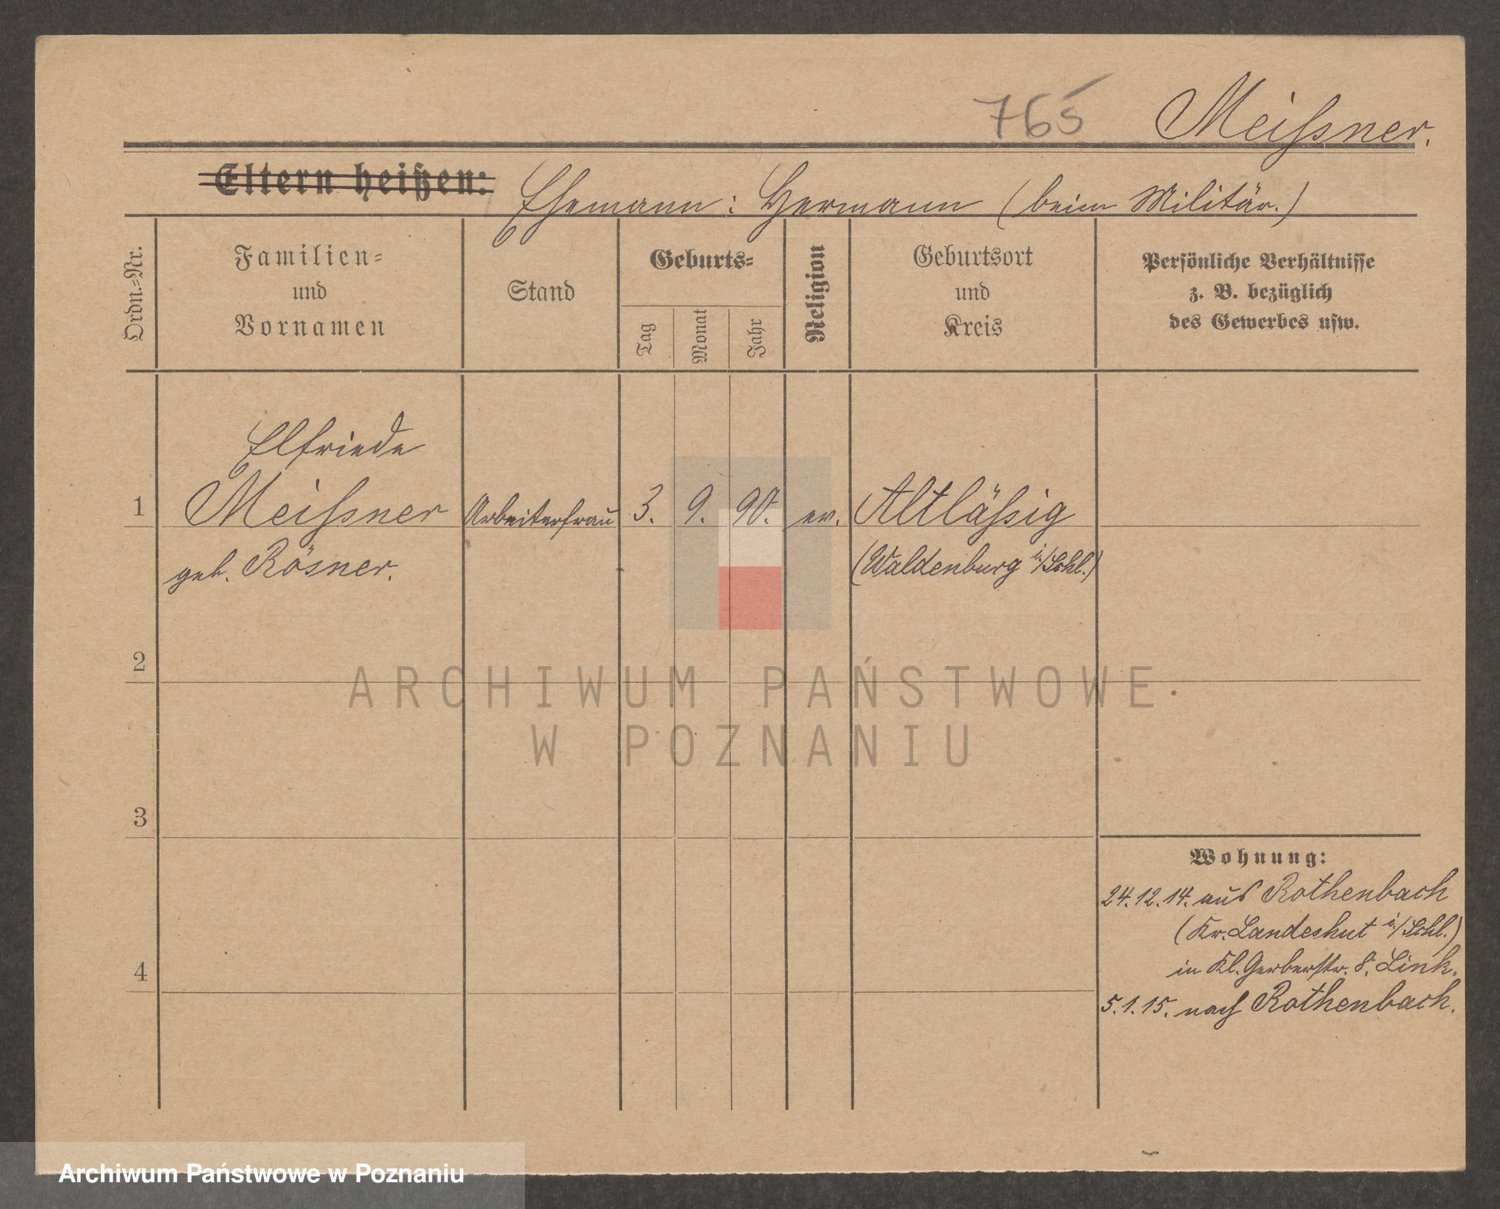 765 Meißner.
Eltern heißen: Ehemann: Hermann (beim Militär.)
Ordn.-Nr.
Familien-
und
Vornamen
Stand
Geburts-
Tag
Monat
Jahr
Religion
Geburtsort
und
Kreis
Persönliche Verhältnisse
z. B. bezüglich
des Gewerbes usw.
Elfriede
1 Meißner Arbeiterfrau 3. 9. 90. ev. Altläßig
geb. Rösner. (Waldenburg i/Schl.)
2
ARCHIWUM PAŃSTWOWE
W POZNANIU
3
Wohnung:
24.12.14. aus Rothenbach
(Kr. Landeshut i/Schl.)
4 in Kl. Gerberstr. 8. Link.
5.1.15. nach Rothenbach.
Archiwum Państwowe w Poznaniu